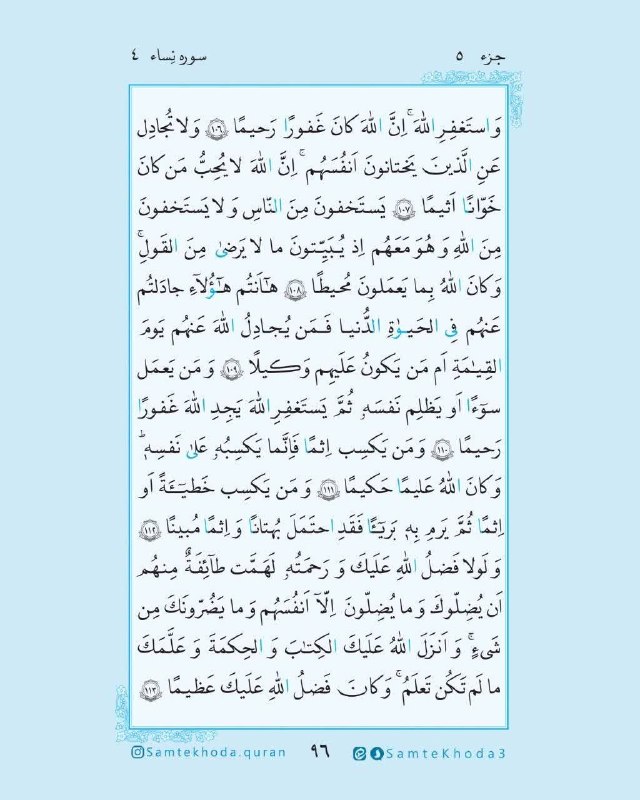 جزء ۵
سوره نساء ۴
وَ استَغفِرِ اللّٰهَ ۚ اِنَّ اللّٰهَ كانَ غَفورًا رَحيمًا ﴿۱۰۶﴾ وَ لا تُجادِل
عَنِ الَّذينَ يَختانونَ اَنفُسَهُم ۚ اِنَّ اللّٰهَ لا يُحِبُّ مَن كانَ
خَوّانًا اَثيمًا ﴿۱۰۷﴾ يَستَخفونَ مِنَ النّاسِ وَ لا يَستَخفونَ
مِنَ اللّٰهِ وَ هُوَ مَعَهُم اِذ يُبَيِّتونَ ما لا يَرضىٰ مِنَ القَولِ ۚ
وَ كانَ اللّٰهُ بِما يَعمَلونَ مُحيطًا ﴿۱۰۸﴾ هٰٓاَنتُم هٰٓؤُلآءِ جادَلتُم
عَنهُم فِى الحَيوٰةِ الدُّنيا فَمَن يُجادِلُ اللّٰهَ عَنهُم يَومَ
القِيٰمَةِ اَم مَن يَكونُ عَلَيهِم وَكيلًا ﴿۱۰۹﴾ وَ مَن يَعمَل
سوٓءًا اَو يَظلِم نَفسَهٗ ثُمَّ يَستَغفِرِ اللّٰهَ يَجِدِ اللّٰهَ غَفورًا
رَحيمًا ﴿۱۱۰﴾ وَ مَن يَكسِب اِثمًا فَاِنَّما يَكسِبُهٗ عَلىٰ نَفسِهٖ ۚ
وَ كانَ اللّٰهُ عَليمًا حَكيمًا ﴿۱۱۱﴾ وَ مَن يَكسِب خَطيٓـَٔةً اَو
اِثمًا ثُمَّ يَرمِ بِهٖ بَريٓـًٔا فَقَدِ احتَمَلَ بُهتانًا وَ اِثمًا مُبينًا ﴿۱۱۲﴾
وَ لَولا فَضلُ اللّٰهِ عَلَيكَ وَ رَحمَتُهٗ لَهَمَّت طآئِفَةٌ مِنهُم
اَن يُضِلّوكَ وَ ما يُضِلّونَ اِلّآ اَنفُسَهُم وَ ما يَضُرّونَكَ مِن
شَىءٍ ۚ وَ اَنزَلَ اللّٰهُ عَلَيكَ الكِتٰبَ وَ الحِكمَةَ وَ عَلَّمَكَ
ما لَم تَكُن تَعلَمُ ۚ وَ كانَ فَضلُ اللّٰهِ عَلَيكَ عَظيمًا ﴿۱۱۳﴾
Samtekhoda.quran
۹۶
SamteKhoda3